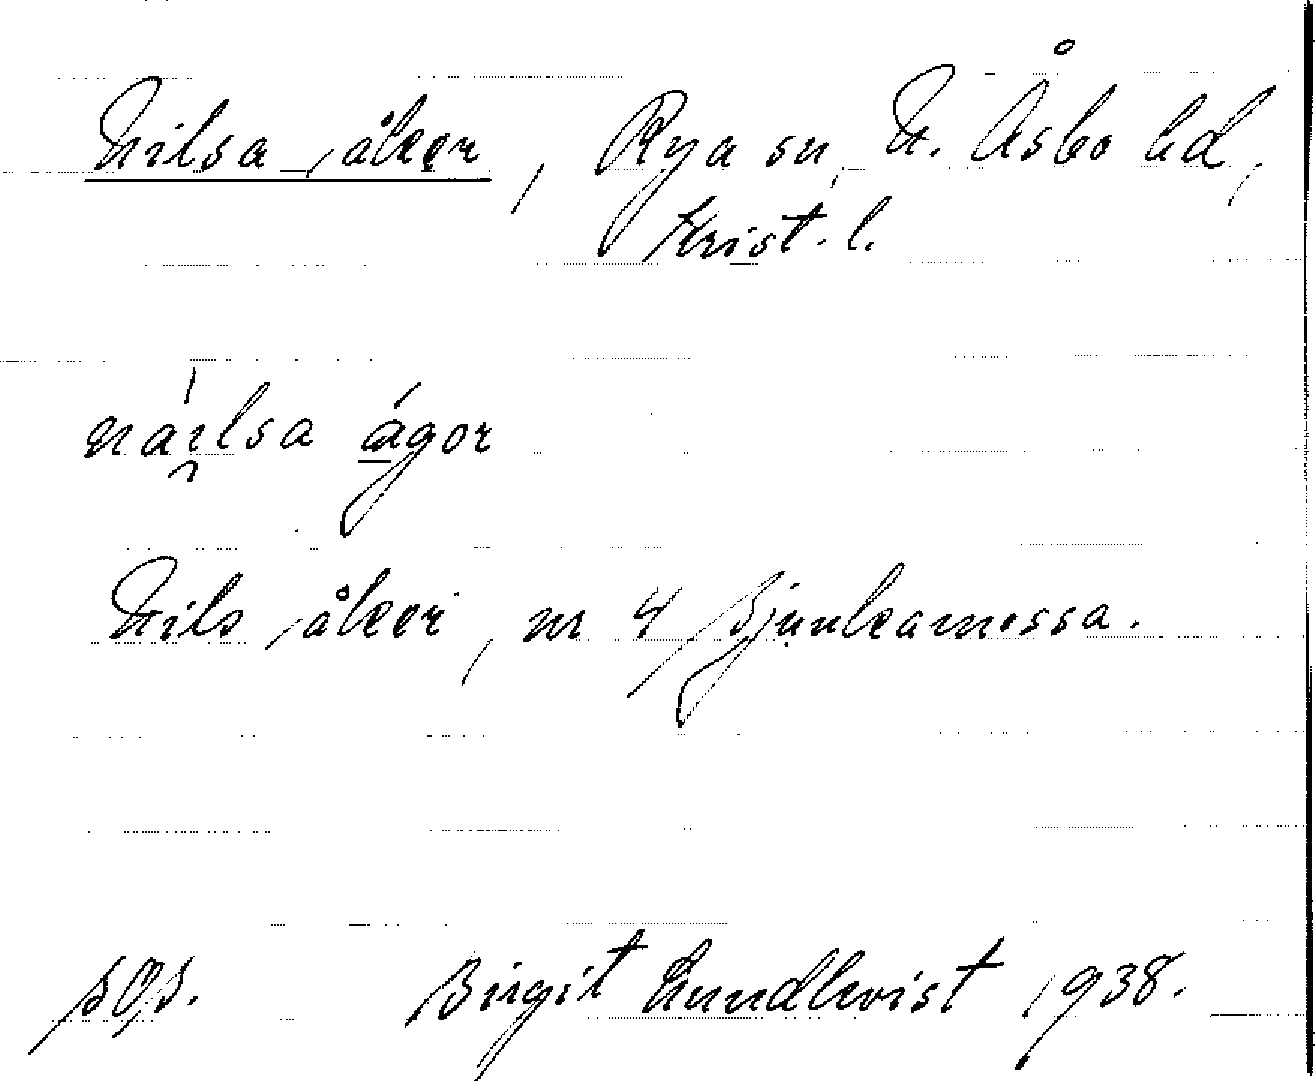 Nilsa _ åker, Rya sn, N. Åsbo hd,
Krist. l.
náilsa ágor
Nils åker, nr 4 Bjunkamossa.
Birgit Lundkvist 1938.